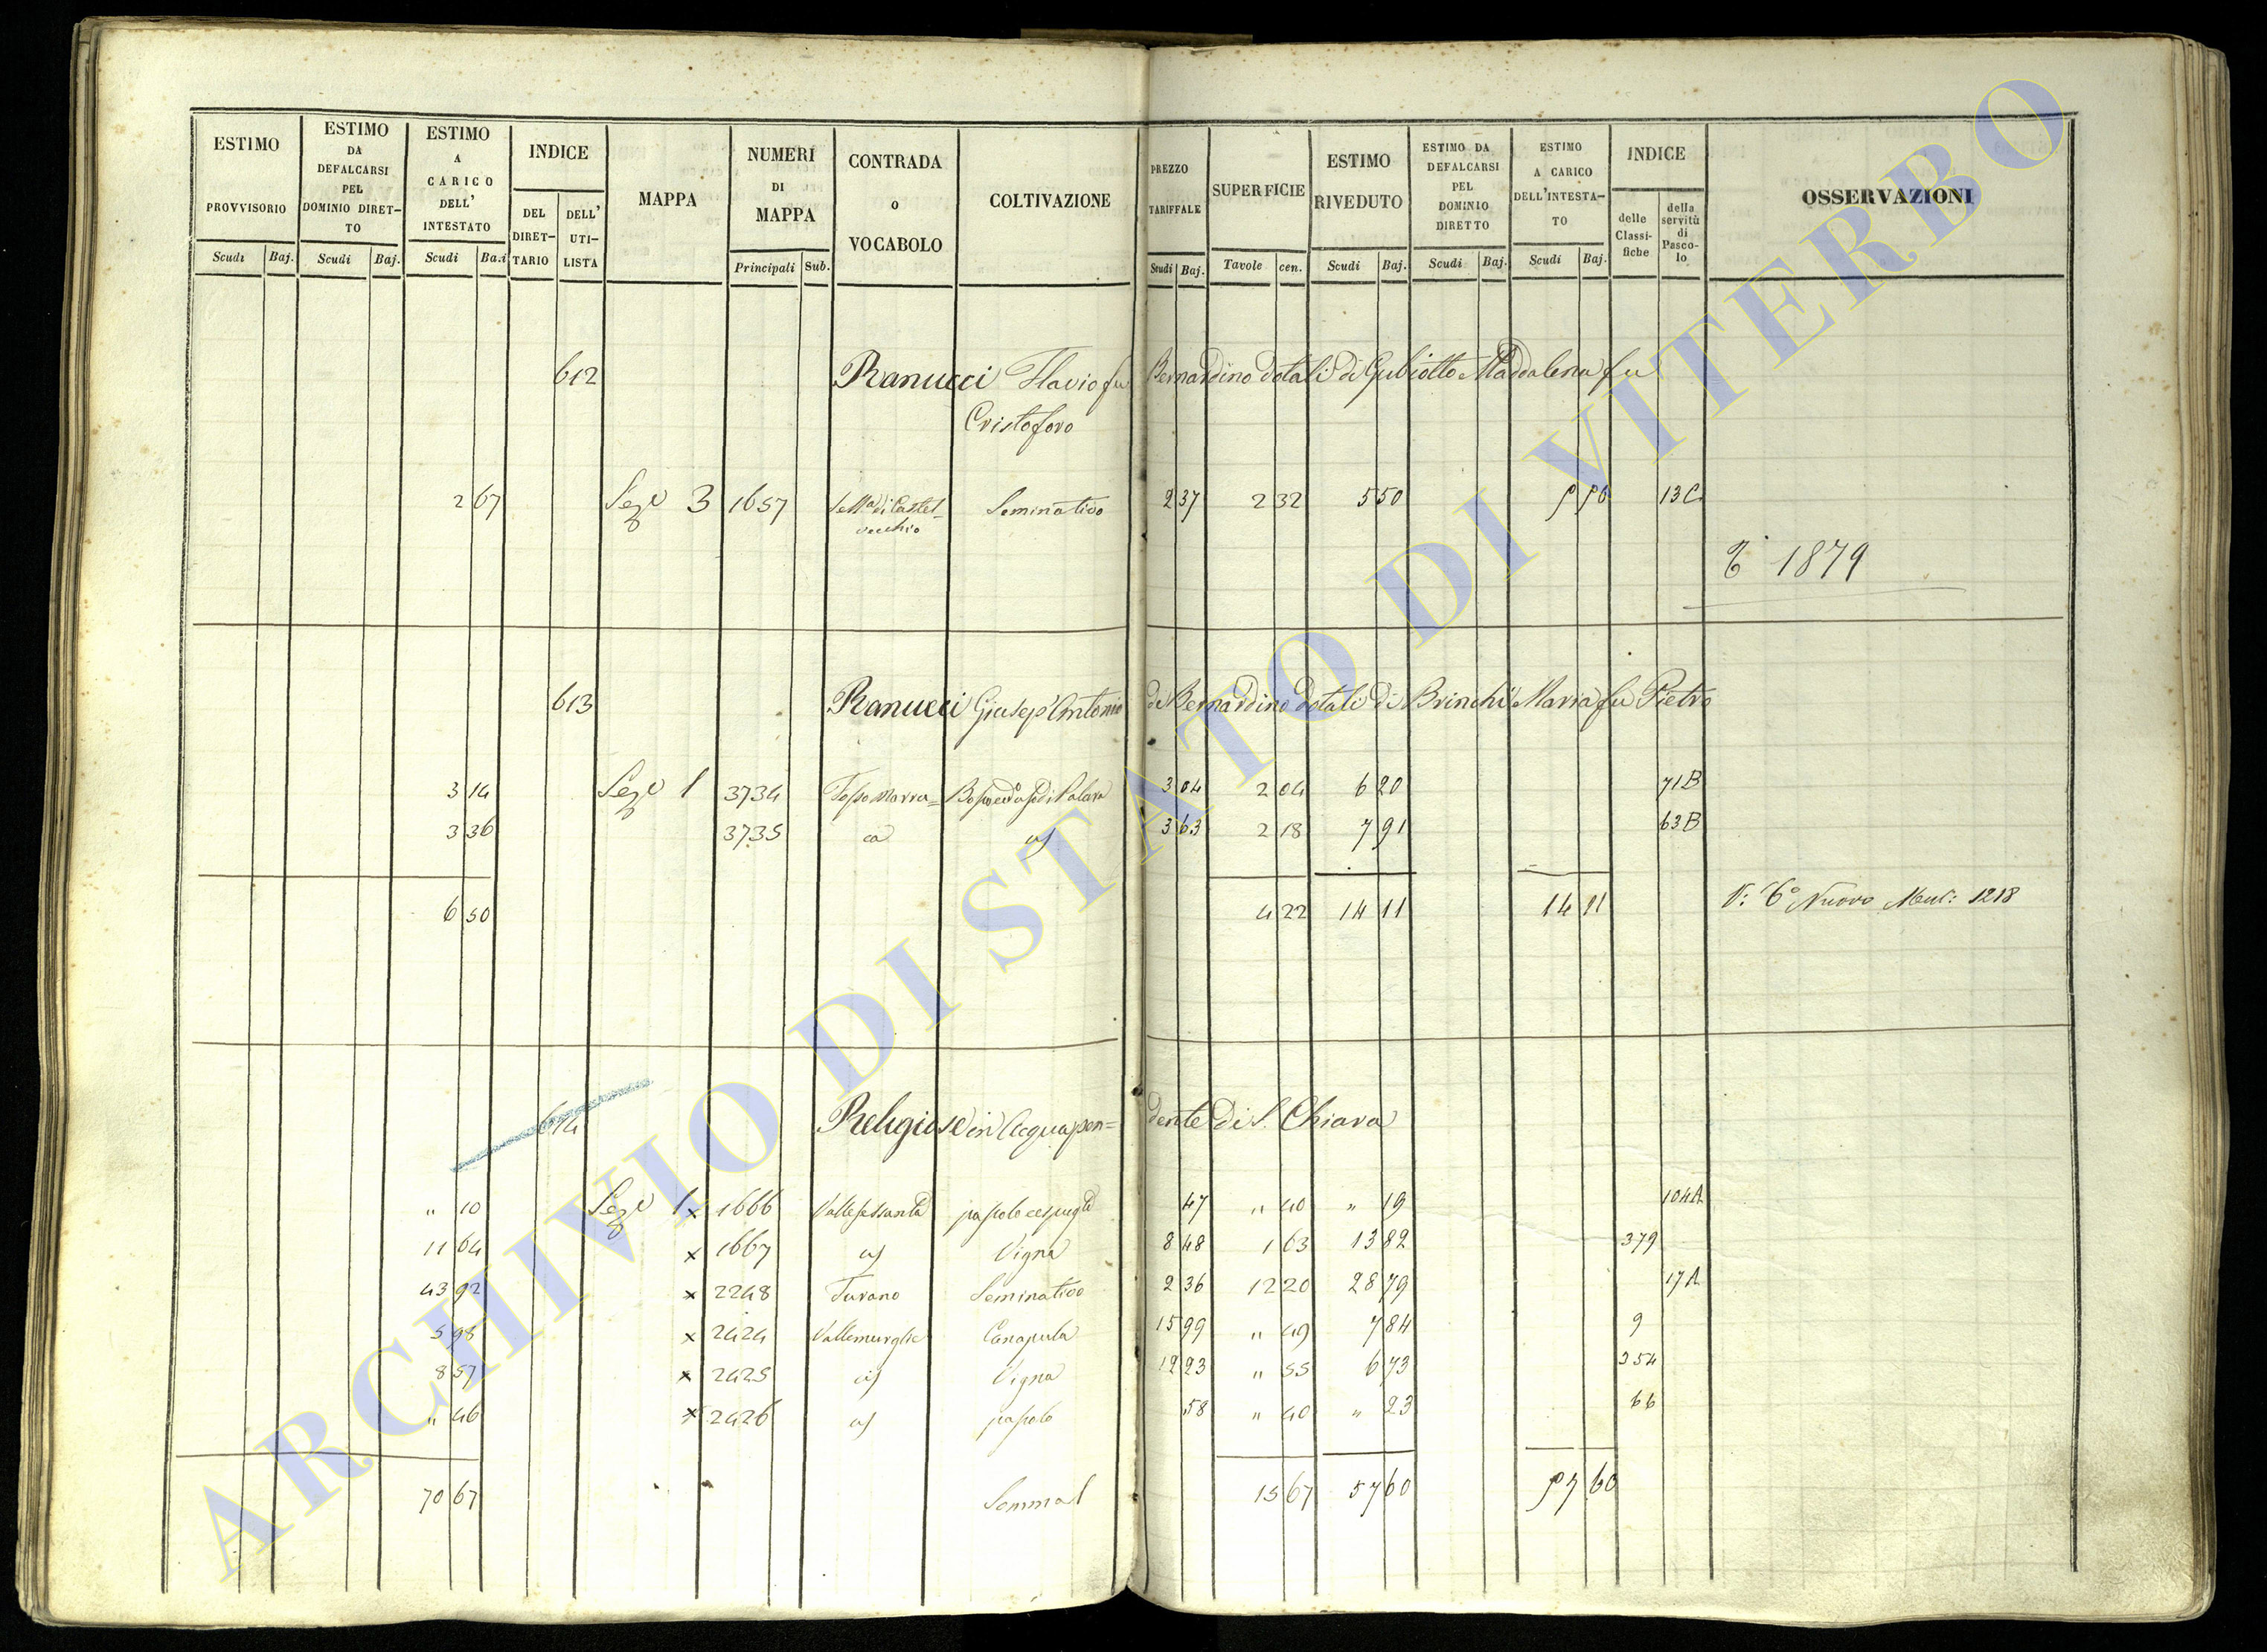 ESTIMO PROVVISORIO
ESTIMO DA DEFALCARSI PEL DOMINIO DIRET–TO
ESTIMO A CARICO DELL' INTESTATO
INDICE
DEL DIRET–TARIO
DELL' UTI–LISTA
MAPPA
NUMERI DI MAPPA
CONTRADA O VOCABOLO
COLTIVAZIONE
PREZZO TARIFFALE
SUPERFICIE
ESTIMO RIVEDUTO
ESTIMO DA DEFALCARSI PEL DOMINIO DIRETTO
ESTIMO A CARICO DELL'INTESTA–TO
INDICE
delle Classi-fiche
della servitù di Pasco-lo
OSSERVAZIONI
Scudi Baj. Scudi Baj. Scudi Baj. Principali Sub. Scudi Baj. Tavole cen. Scudi Baj. Scudi Baj. Scudi Baj.
612 Ranucci Flavio fu Bernardino dotali di Gubiotto Maddalena fu
Cristoforo
2 67 Sez.e 3 1657 di Castel– Seminativo 2 37 2 32 5 50 13 C
vecchio
1879
613 Ranucci Giusep' Antonio di Bernardino dotali di Brinchi Maria fu Pietro
3 14 Sez.e 1 3734 3 04 2 04 6 20 71 B
3 36 3735 3 63 2 18 7 91 63 B
6 50 4 22 14 11 14 11 V: Nuovo 1218
614 Religiose in Acquapen= dente di S. Chiara
" 10 Sez.e 1 x 1666 pascolo cespugl.o 47 " 40 " 19 104 A
11 64 x 1667 id Vigna 8 48 1 63 13 82 379
43 92 x 2248 Turano Seminativo 2 36 12 20 28 79 17 A
5 98 x 2424 Vallemurglie Canapula 15 99 " 49 7 84 9
8 57 x 2425 id Vigna 12 23 " 55 6 73 354
" 46 x 2426 id pascolo 58 " 40 " 23 66
70 67 Somma 15 67 57 60 57 60
ARCHIVIO DI STATO DI VITERBO